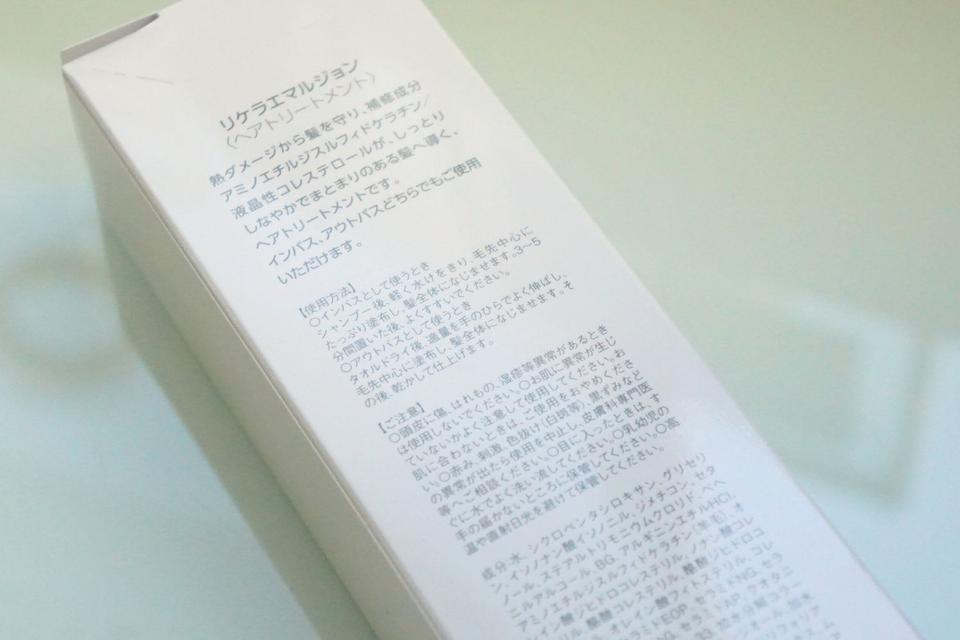 リケラエマルジョン
〈ヘアトリートメント〉
熱ダメージから髪を守り、補修成分
アミノエチルジスルフィドケラチン/
液晶性コレステロールが、しっとり
しなやかでまとまりのある髪へ導く、
ヘアトリートメントです。
インバス、アウトバスどちらでもご使用
いただけます。
【使用方法】
○インバスとして使うとき
シャンプー後、軽く水けをきり、毛先中心に
たっぷり塗布し、髪全体になじませます。3〜5
分間置いた後、よくすすいでください。
○アウトバスとして使うとき
タオルドライ後、適量を手のひらでよく伸ばし、
毛先中心に塗布し、髪全体になじませます。そ
の後、乾かして仕上げます。
【ご注意】
○頭皮に傷、はれもの、湿疹等異常があるとき
は使用しないでください。○お肌に異常が生じ
ていないかよく注意して使用してください。お
肌に合わないときは、ご使用をおやめくださ
い。○赤み、刺激、色抜け(白斑等)、黒ずみなど
の異常が出たら使用を中止し、皮膚科専門医
等へご相談ください。○目に入ったときは、す
ぐに水でよく洗い流してください。○乳幼児の
手の届かないところに保管してください。○高
温や直射日光を避けて保管してください。
成分:水、シクロペンタシロキサン、グリセリ
ン、イソノナン酸イソノニル、ジメチコン、セタ
ノール、ステアルトリモニウムクロリド、ベヘ
ニルアルコール、BG、アルギニンエチルHCl、
アミノエチルジスルフィドケラチン(羊毛)、オ